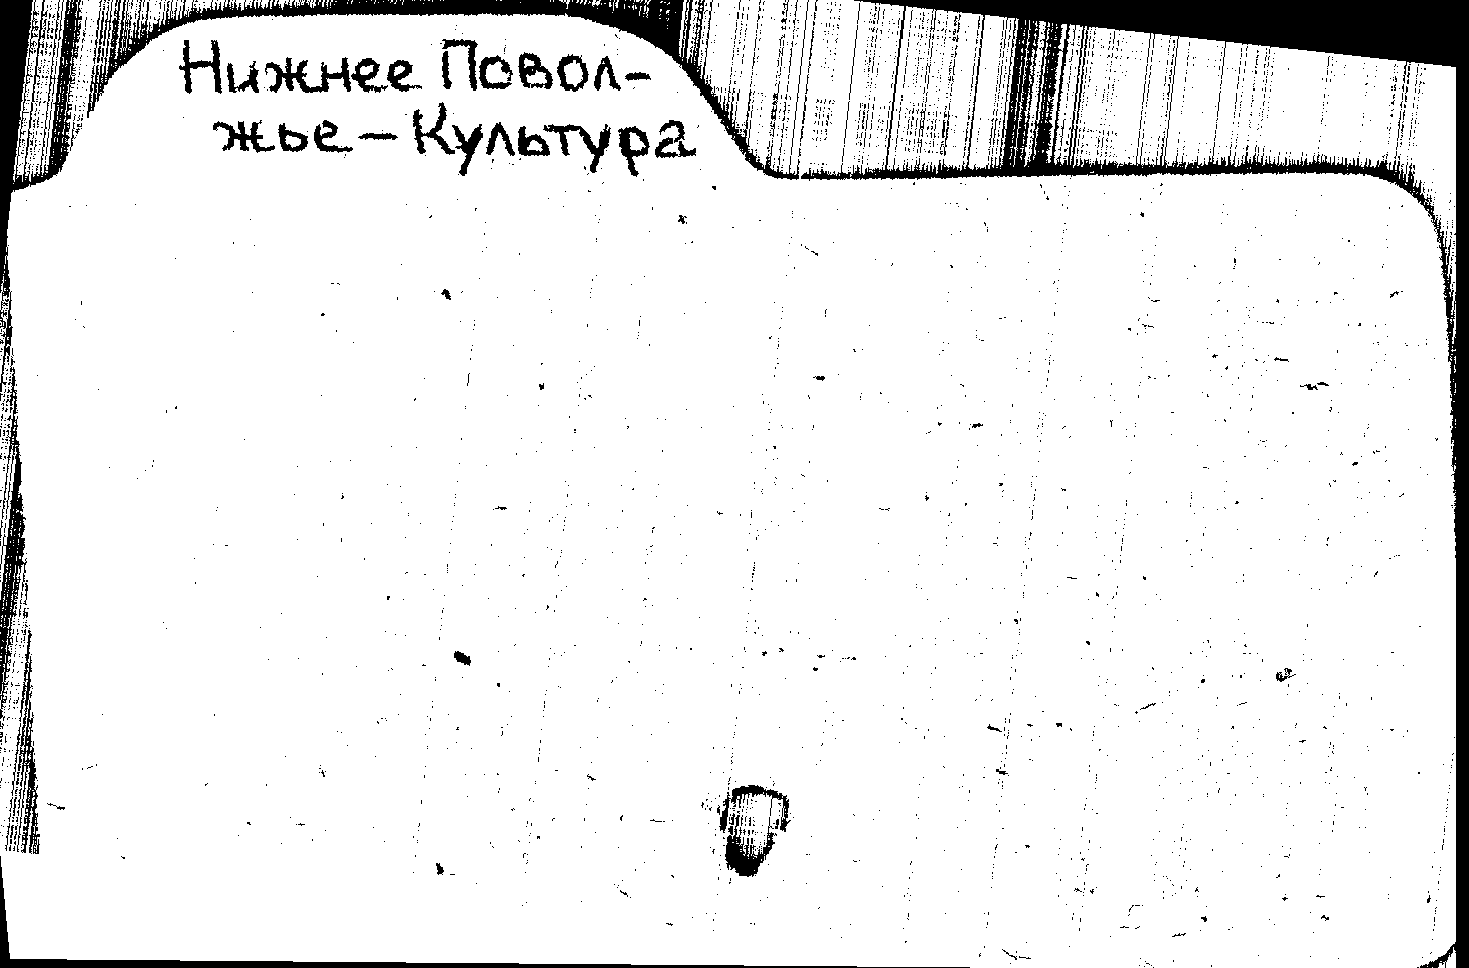 Нижнее Повол-
жье – Культура